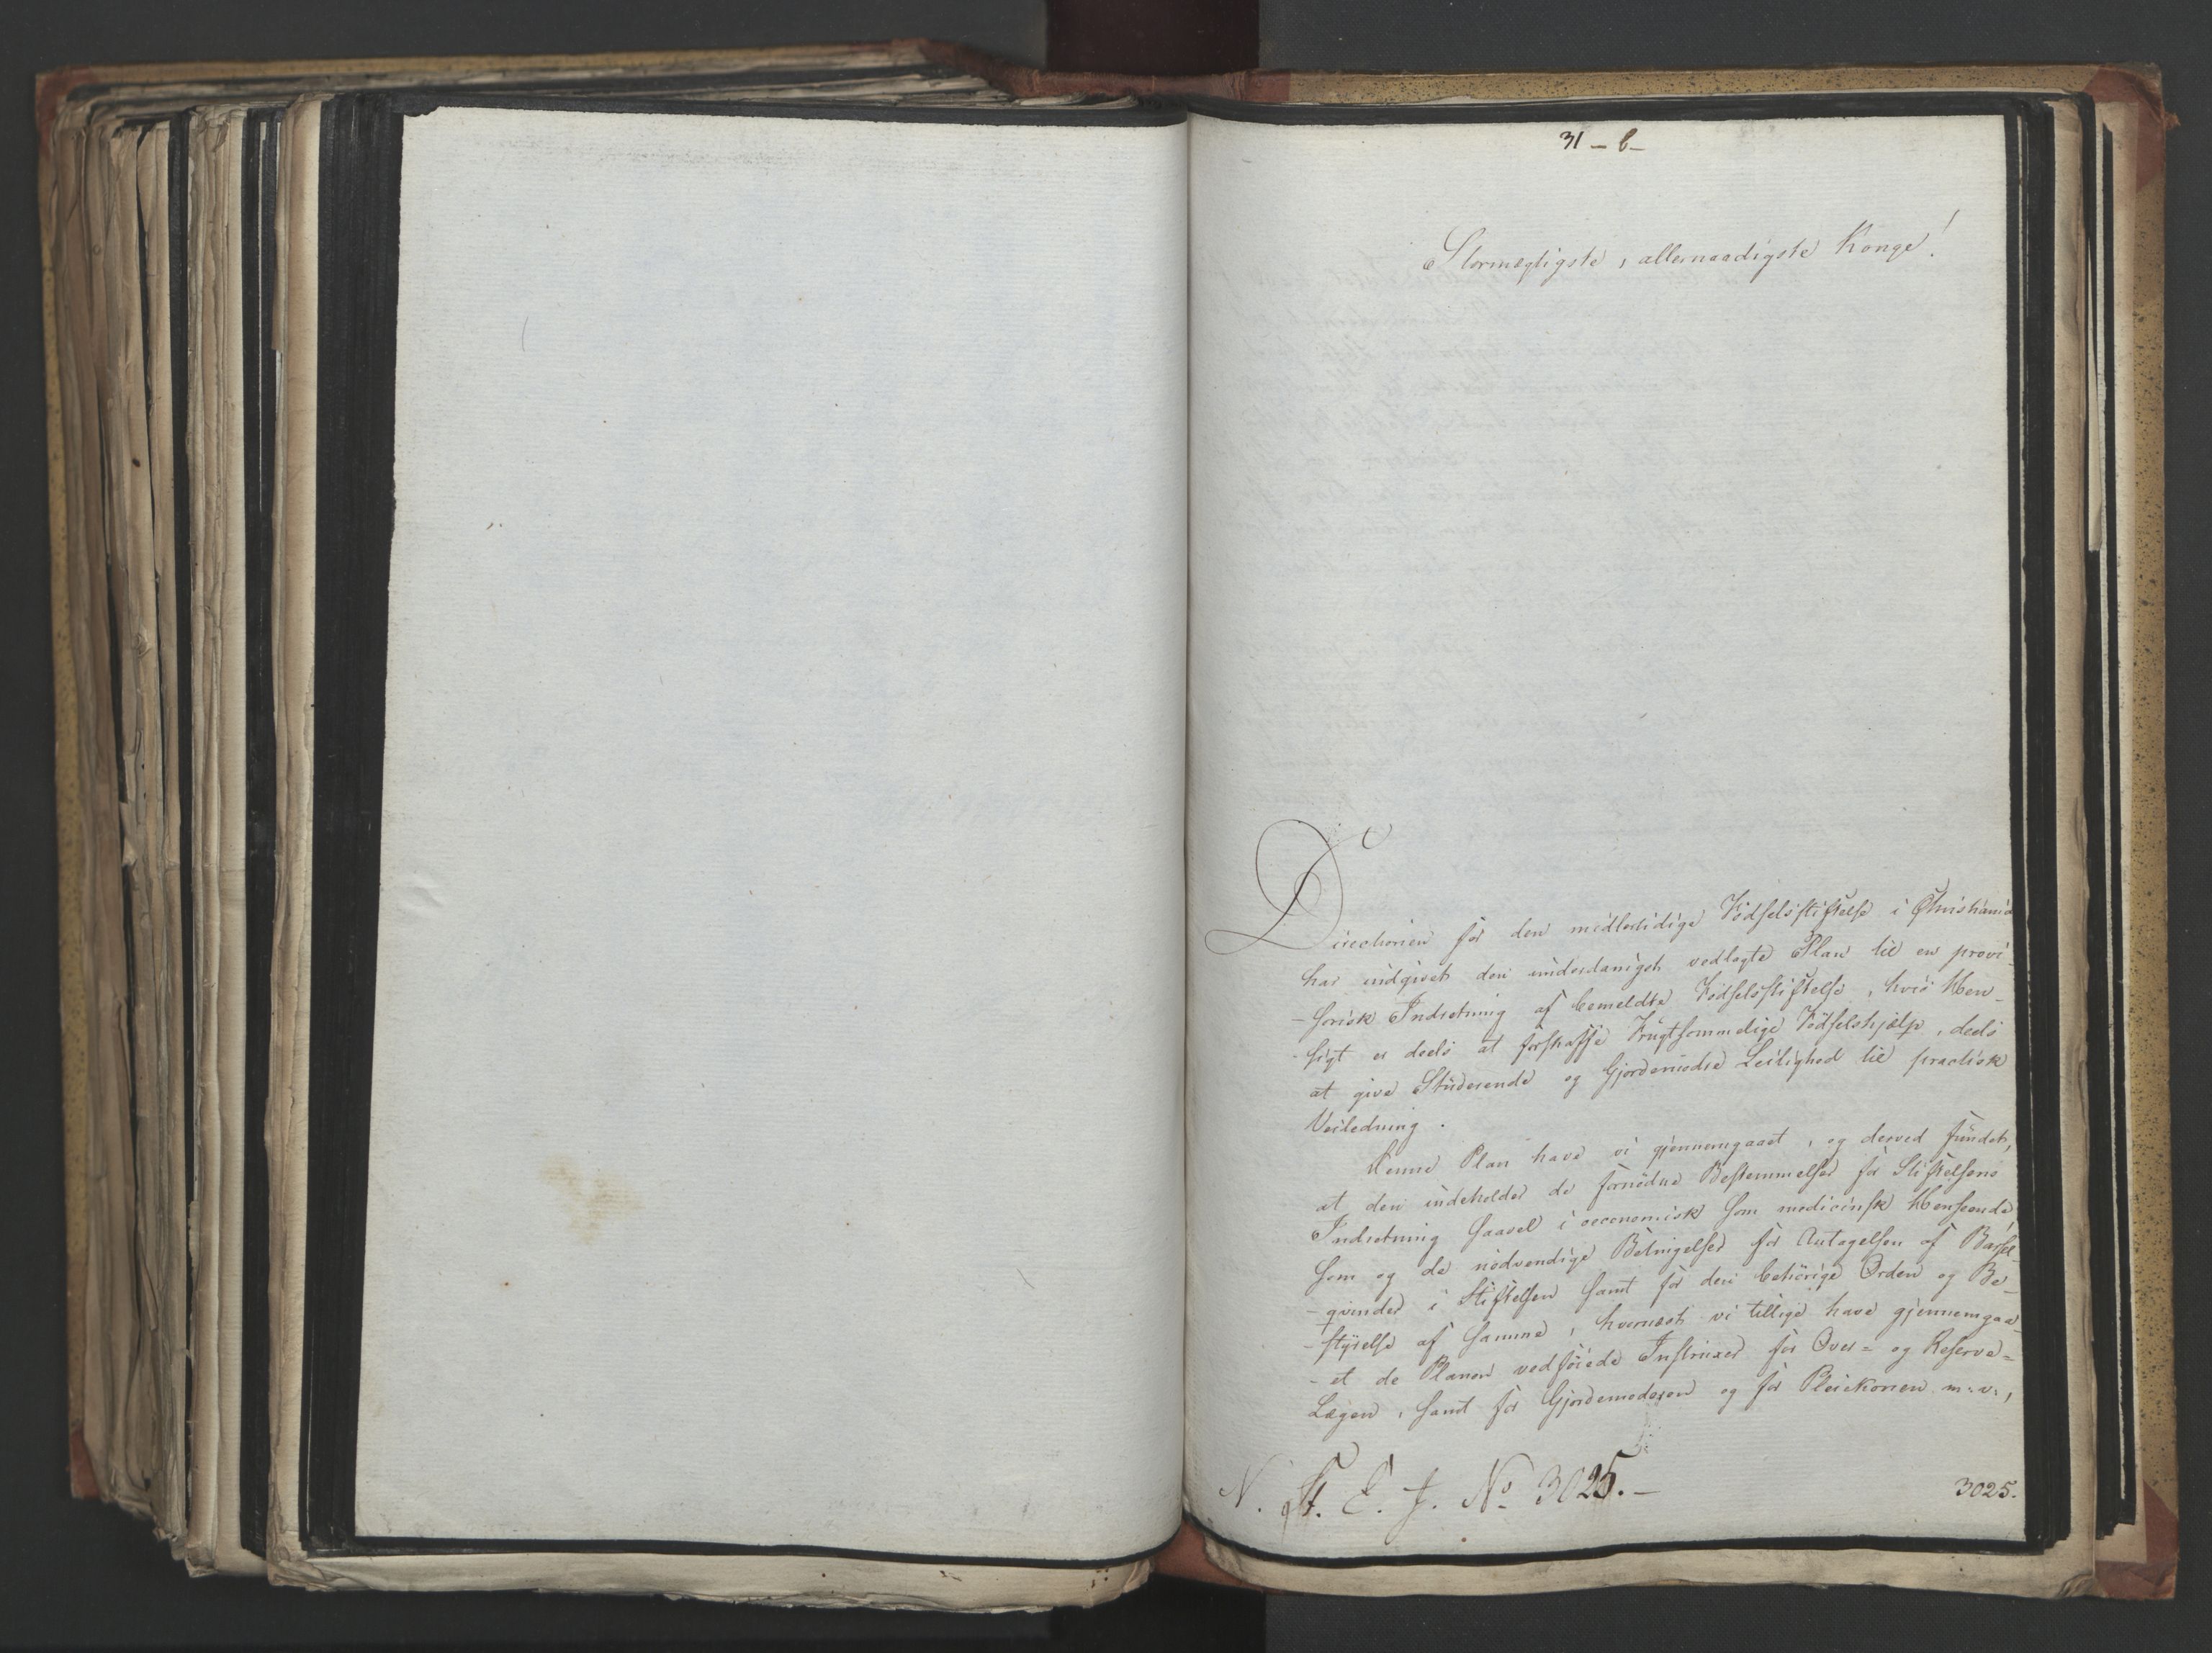 31 - b -
Stormægtigste, allernaadigste Konge!
Directionen for den midlertidige Födselsstiftelse i Christiania
har indgivet den underdanigst vedlagte Plan til en provi-
-sorisk Indretning af bemeldte Födselsstiftelse, hvis Hen-
-sigt er deels at forskaffe Frugtsommelige Födselshjælp, deels
at give Studerende og Gjordemödre Leilighed til practisk
Veiledning.
Denne Plan have vi gjennemgaaet, og derved fundet,
at den indeholder de fornödne Bestemmelser for Stiftelsens
Indretning saavel i oeconomisk som medicinsk Henseende
som og de nödvendige Betingelser for Antagelsen af Barsel-
-qvinder i Stiftelsen samt for den behörige Orden og Be-
-styrelse af samme, hvornæst vi tillige have gjennemgaa-
-et de Planen vedföiede Instruxer for Over= og Reserve=
Lægen, samt for Gjordemoderen og for Pleiekonen m: v:,
N. St. E. J. No 3025. -
3025.